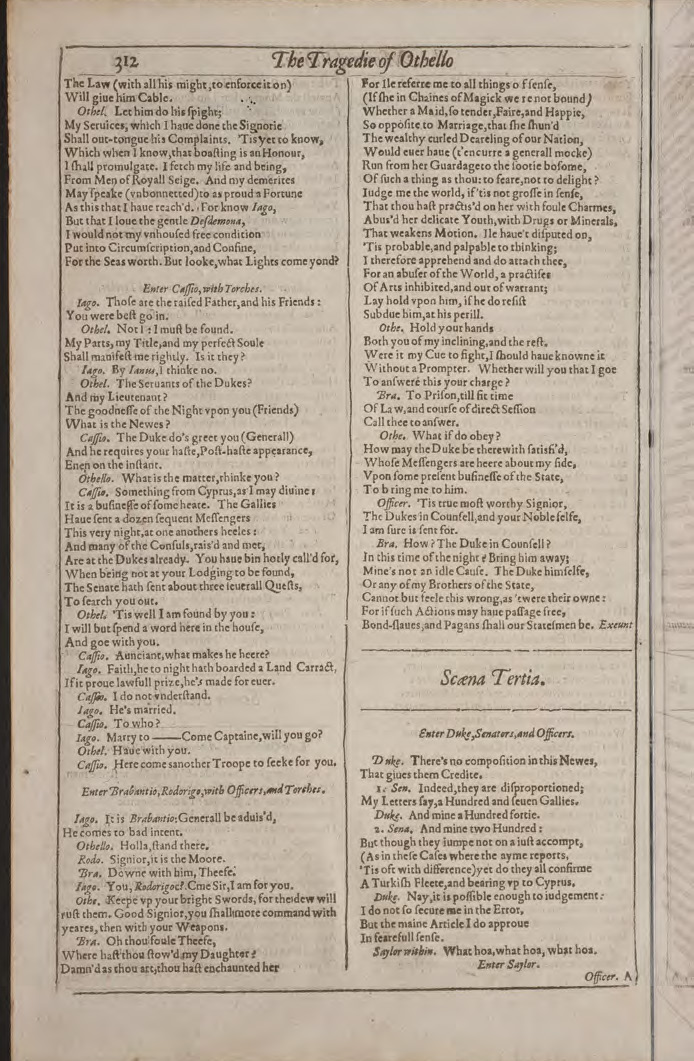 312
The Tragedie of Othello
The Law (with all his might, to enforce it on)
Will giue him Cable.
Othel. Let him do his ſpight;
My Seruices, which I haue done the Signorie
Shall out-tongue his Complaints. 'Tis yet to know,
Which when I know, that boaſting is an Honour,
I ſhall promulgate. I fetch my life and being,
From Men of Royall Seige. And my demerites
May ſpeake (vnbonnetted) to as proud a Fortune
As this that I haue reach'd. For know Iago,
But that I loue the gentle Deſdemona,
I would not my vnhouſed free condition
Put into Circumſcription, and Confine,
For the Seas worth. But looke, what Lights come yond?
Enter Caſſio, with Torches.
Iago. Thoſe are the raiſed Father, and his Friends:
You were beſt go in.
Othel. Not I: I muſt be found.
My Parts, my Title, and my perfect Soule
Shall manifeſt me rightly. Is it they?
Iago. By Ianus, I thinke no.
Othel. The Seruants of the Dukes?
And my Lieutenant?
The goodneſſe of the Night vpon you (Friends)
What is the Newes?
Caſſio. The Duke do's greet you (Generall)
And he requires your haſte, Poſt-haſte appearance,
Enen on the inſtant.
Othello. What is the matter, thinke you?
Caſſio. Something from Cyprus, as I may diuine:
It is a buſineſſe of ſome heate. The Gallies
Haue ſent a dozen ſequent Meſſengers
This very night, at one anothers heeles:
And many of the Conſuls, rais'd and met,
Are at the Dukes already. You haue bin hotly call'd for,
When being not at your Lodging to be found,
The Senate hath ſent about three ſeuerall Queſts,
To ſearch you out.
Othel. 'Tis well I am found by you:
I will but ſpend a word here in the houſe,
And goe with you.
Caſſio. Aunciant, what makes he heere?
Iago. Faith, he to night hath boarded a Land Carract,
If it proue lawfull prize, he's made for euer.
Caſſio. I do not vnderſtand.
Iago. He's married.
Caſſio. To who?
Iago. Marry to——Come Captaine, will you go?
Othel. Haue with you.
Caſſio. Here come sanother Troope to ſeeke for you.
Enter Brabantio, Rodorigo, with Officers, and Torches.
Iago. It is Brabantio: Generall be aduis'd,
He comes to bad intent.
Othello. Holla, ſtand there.
Rodo. Signior, it is the Moore.
Bra. Downe with him, Theefe.
Iago. You, Rodorigoc? Cme Sir, I am for you.
Othe. Keepe vp your bright Swords, for the dew will
ruſt them. Good Signior, you ſhall more command with
yeares, then with your Weapons.
Bra. Oh thou foule Theefe,
Where haſt thou ſtow'd my Daughter?
Damn'd as thou art, thou haſt enchaunted her
For Ile referre me to all things of ſenſe,
(If ſhe in Chaines of Magick were not bound)
Whether a Maid, ſo tender, Faire, and Happie,
So oppoſite to Marriage, that ſhe ſhun'd
The wealthy curled Deareling of our Nation,
Would euer haue (t'encurre a generall mocke)
Run from her Guardage to the ſootie boſome,
Of ſuch a thing as thou: to feare, not to delight?
Iudge me the world, if 'tis not groſſe in ſenſe,
That thou haſt practis'd on her with foule Charmes,
Abus'd her delicate Youth, with Drugs or Minerals,
That weakens Motion. Ile haue't diſputed on,
'Tis probable, and palpable to thinking;
I therefore apprehend and do attach thee,
For an abuſer of the World, a practiſer
Of Arts inhibited, and out of warrant;
Lay hold vpon him, if he do reſiſt
Subdue him, at his perill.
Othe. Hold your hands
Both you of my inclining, and the reſt.
Were it my Cue to fight, I ſhould haue knowne it
Without a Prompter. Whether will you that I goe
To anſwere this your charge?
Bra. To Priſon, till fit time
Of Law, and courſe of direct Seſſion
Call thee to anſwer.
Othe. What if do obey?
How may the Duke be therewith ſatiſfi'd,
Whoſe Meſſengers are heere about my ſide,
Vpon ſome preſent buſineſſe of the State,
To bring me to him.
Officer. 'Tis true moſt worthy Signior,
The Dukes in Counſell, and your Noble ſelfe,
I am ſure is ſent for.
Bra. How? The Duke in Counſell?
In this time of the night? Bring him away;
Mine's not an idle Cauſe. The Duke himſelfe,
Or any of my Brothers of the State,
Cannot but feele this wrong, as 'twere their owne:
For if ſuch Actions may haue paſſage free,
Bond-ſlaues, and Pagans ſhall our Stateſmen be. Exeunt
Scæna Tertia.
Enter Duke, Senators, and Officers.
Duke. There's no compoſition in this Newes,
That giues them Credite.
1. Sen. Indeed, they are diſproportioned;
My Letters ſay, a Hundred and ſeuen Gallies.
Duke. And mine a Hundred fortie.
2. Sena. And mine two Hundred:
But though they iumpe not on a iuſt accompt,
(As in theſe Caſes where the ayme reports,
'Tis oft with difference) yet do they all confirme
A Turkiſh Fleete, and bearing vp to Cyprus.
Duke. Nay, it is poſſible enough to iudgement:
I do not ſo ſecure me in the Error,
But the maine Article I do approue
In fearefull ſenſe.
Saylor within. What hoa, what hoa, what hoa.
Enter Saylor.
Officer. A